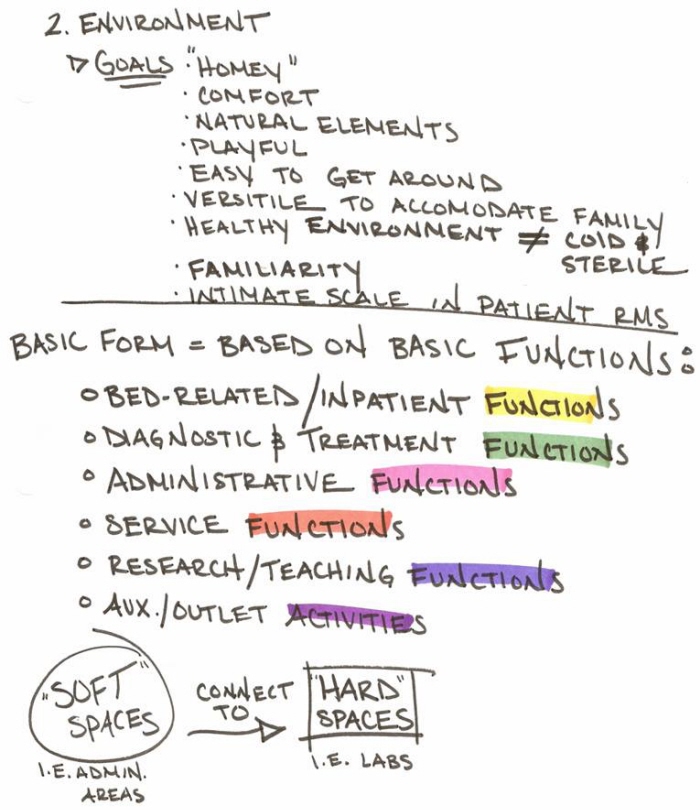 2. ENVIRONMENT
▷ GOALS · "HOMEY"
· COMFORT
· NATURAL ELEMENTS
· PLAYFUL
· EASY TO GET AROUND
· VERSITILE TO ACCOMODATE FAMILY
· HEALTHY ENVIRONMENT ≠ COLD &
STERILE
· FAMILIARITY
· INTIMATE SCALE IN PATIENT RMS
BASIC FORM = BASED ON BASIC FUNCTIONS:
o BED-RELATED/INPATIENT FUNCTIONS
o DIAGNOSTIC & TREATMENT FUNCTIONS
o ADMINISTRATIVE FUNCTIONS
o SERVICE FUNCTIONS
o RESEARCH/TEACHING FUNCTIONS
o AUX./OUTLET ACTIVITIES
"SOFT"
SPACES
I.E. ADMIN.
AREAS
CONNECT
TO
"HARD"
SPACES
I.E. LABS